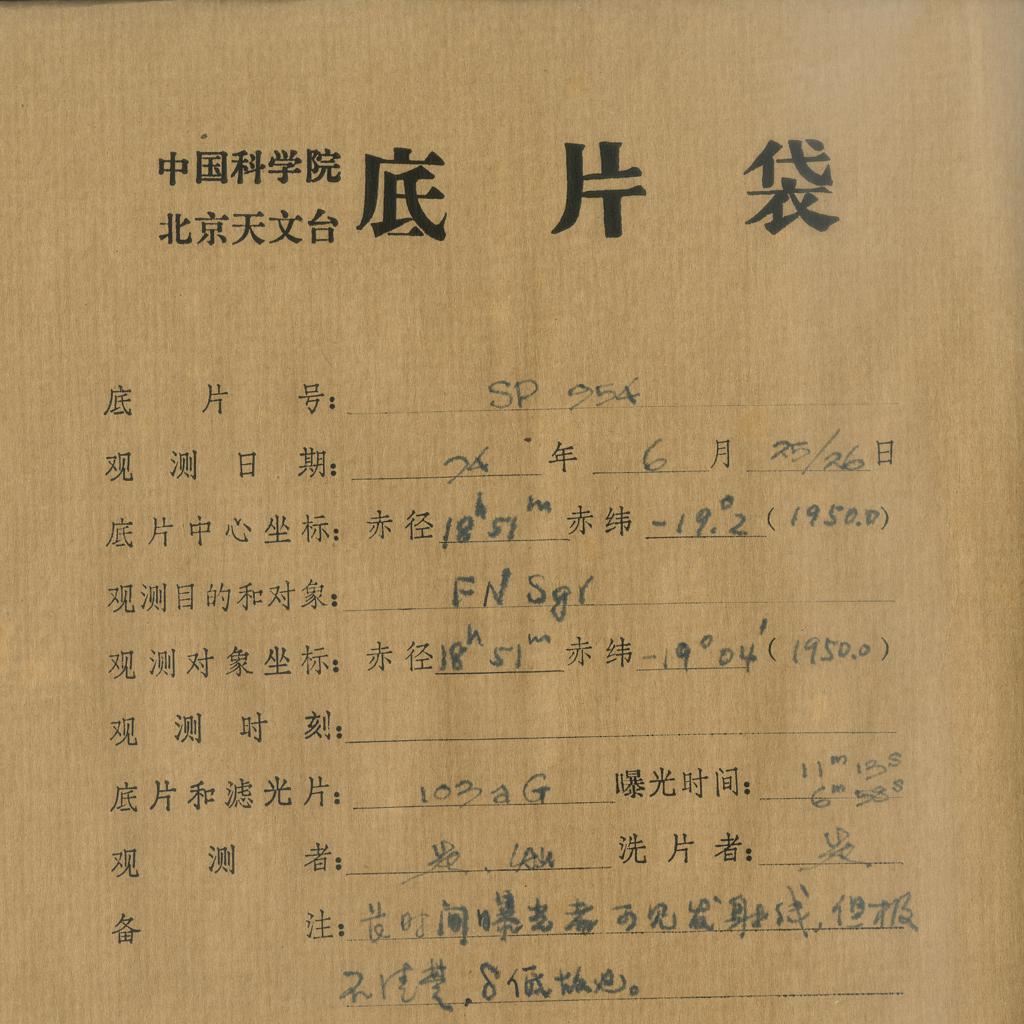 中国科学院
北京天文台
底片袋
底片号： SP 954
观测日期： 74 年 6 月 25/26 日
底片中心坐标： 赤径 18h 51m 赤纬 -19°.2 (1950.0)
观测目的和对象： FN Sgr
观测对象坐标： 赤径 18h 51m 赤纬 -19° 04′ (1950.0)
观测时刻：
底片和滤光片： 103aG 曝光时间： 11m 13s
6m 58s
观测者： 洗片者：
备注： 长时间曝光者可见发射线，但极
不清楚，δ低故也。